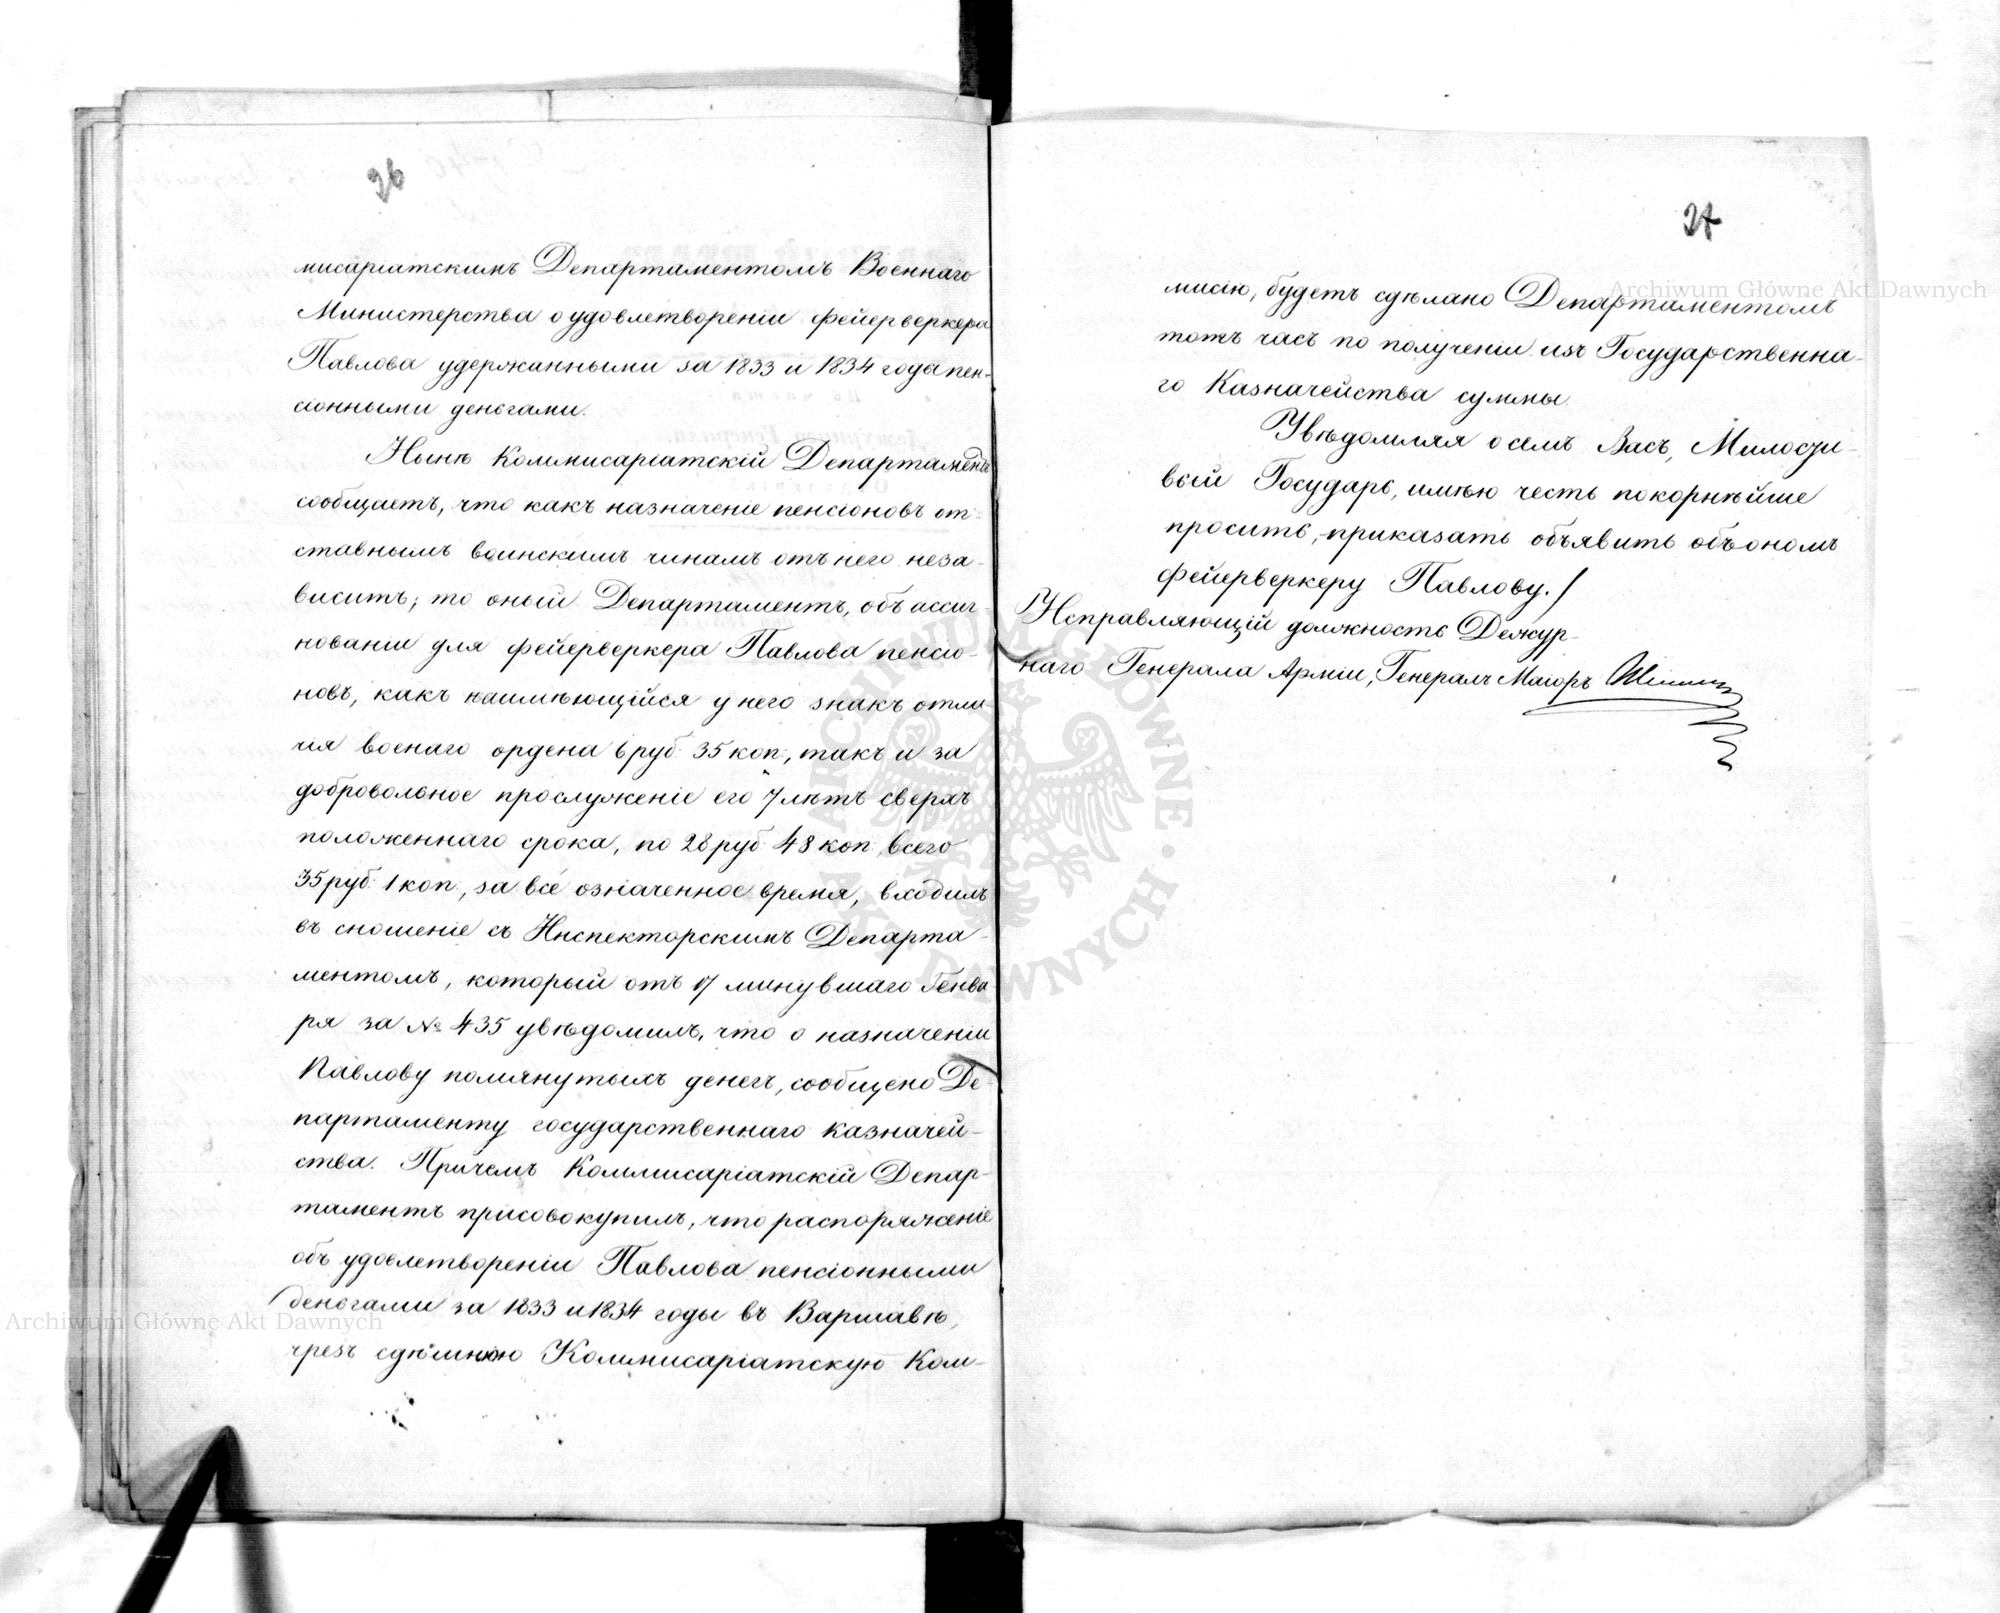 26
мисаріатскимъ Департаментомъ Военнаго
Министерства о удовлетвореніи фейерверкера
Павлова удержанными за 1833 и 1834 года пен-
сіонными деньгами.
Нынѣ Коммисаріатскій Департаментъ
сообщаетъ, что какъ назначеніе пенсіоновъ от-
ставнымъ воинскимъ чинамъ отъ него неза-
виситъ; то оный Департаментъ, объ ассиг-
нованіи для фейерверкера Павлова пенсіо-
новъ, какъ наимѣющійся у него знакъ отли-
чія военаго ордена 6 руб. 35 коп., такъ и за
добровольное прослуженіе его 7 лѣтъ сверхъ
положеннаго срока, по 28 руб 48 коп. всего
35 руб. 1 коп., за всё означенное время, входилъ
въ сношеніе съ Инспекторскимъ Департа-
ментомъ, который отъ 17 минувшаго Генва-
ря за № 435 увѣдомилъ, что о назначеніи
Павлову помянутыхъ денегъ, сообщено Де-
партаменту государственнаго казначей-
ства. Причемъ Коммисаріатскій Депар-
таментъ присовокупилъ, что распоряженіе
объ удовлетвореніи Павлова пенсіонными
деньгами за 1833 и 1834 годы въ Варшавѣ,
чрезъ Коммисаріатскую Ком-
27
мисію, будетъ сдѣлано Департаментомъ
тотъ часъ по полученіи изъ Государственна-
го Казначейства суммы.
Увѣдомляя о семъ Васъ, Милости-
вый Государь, имѣю честь покорнѣйше
просить, приказать объявить объ ономъ
фейерверкеру Павлову./
Исправляющій должность Дежур-
наго Генерала Арміи, Генералъ Маіоръ
Archiwum Główne Akt Dawnych
Archiwum Główne Akt Dawnych
ARCHIWUM GŁÓWNE AKT DAWNYCH